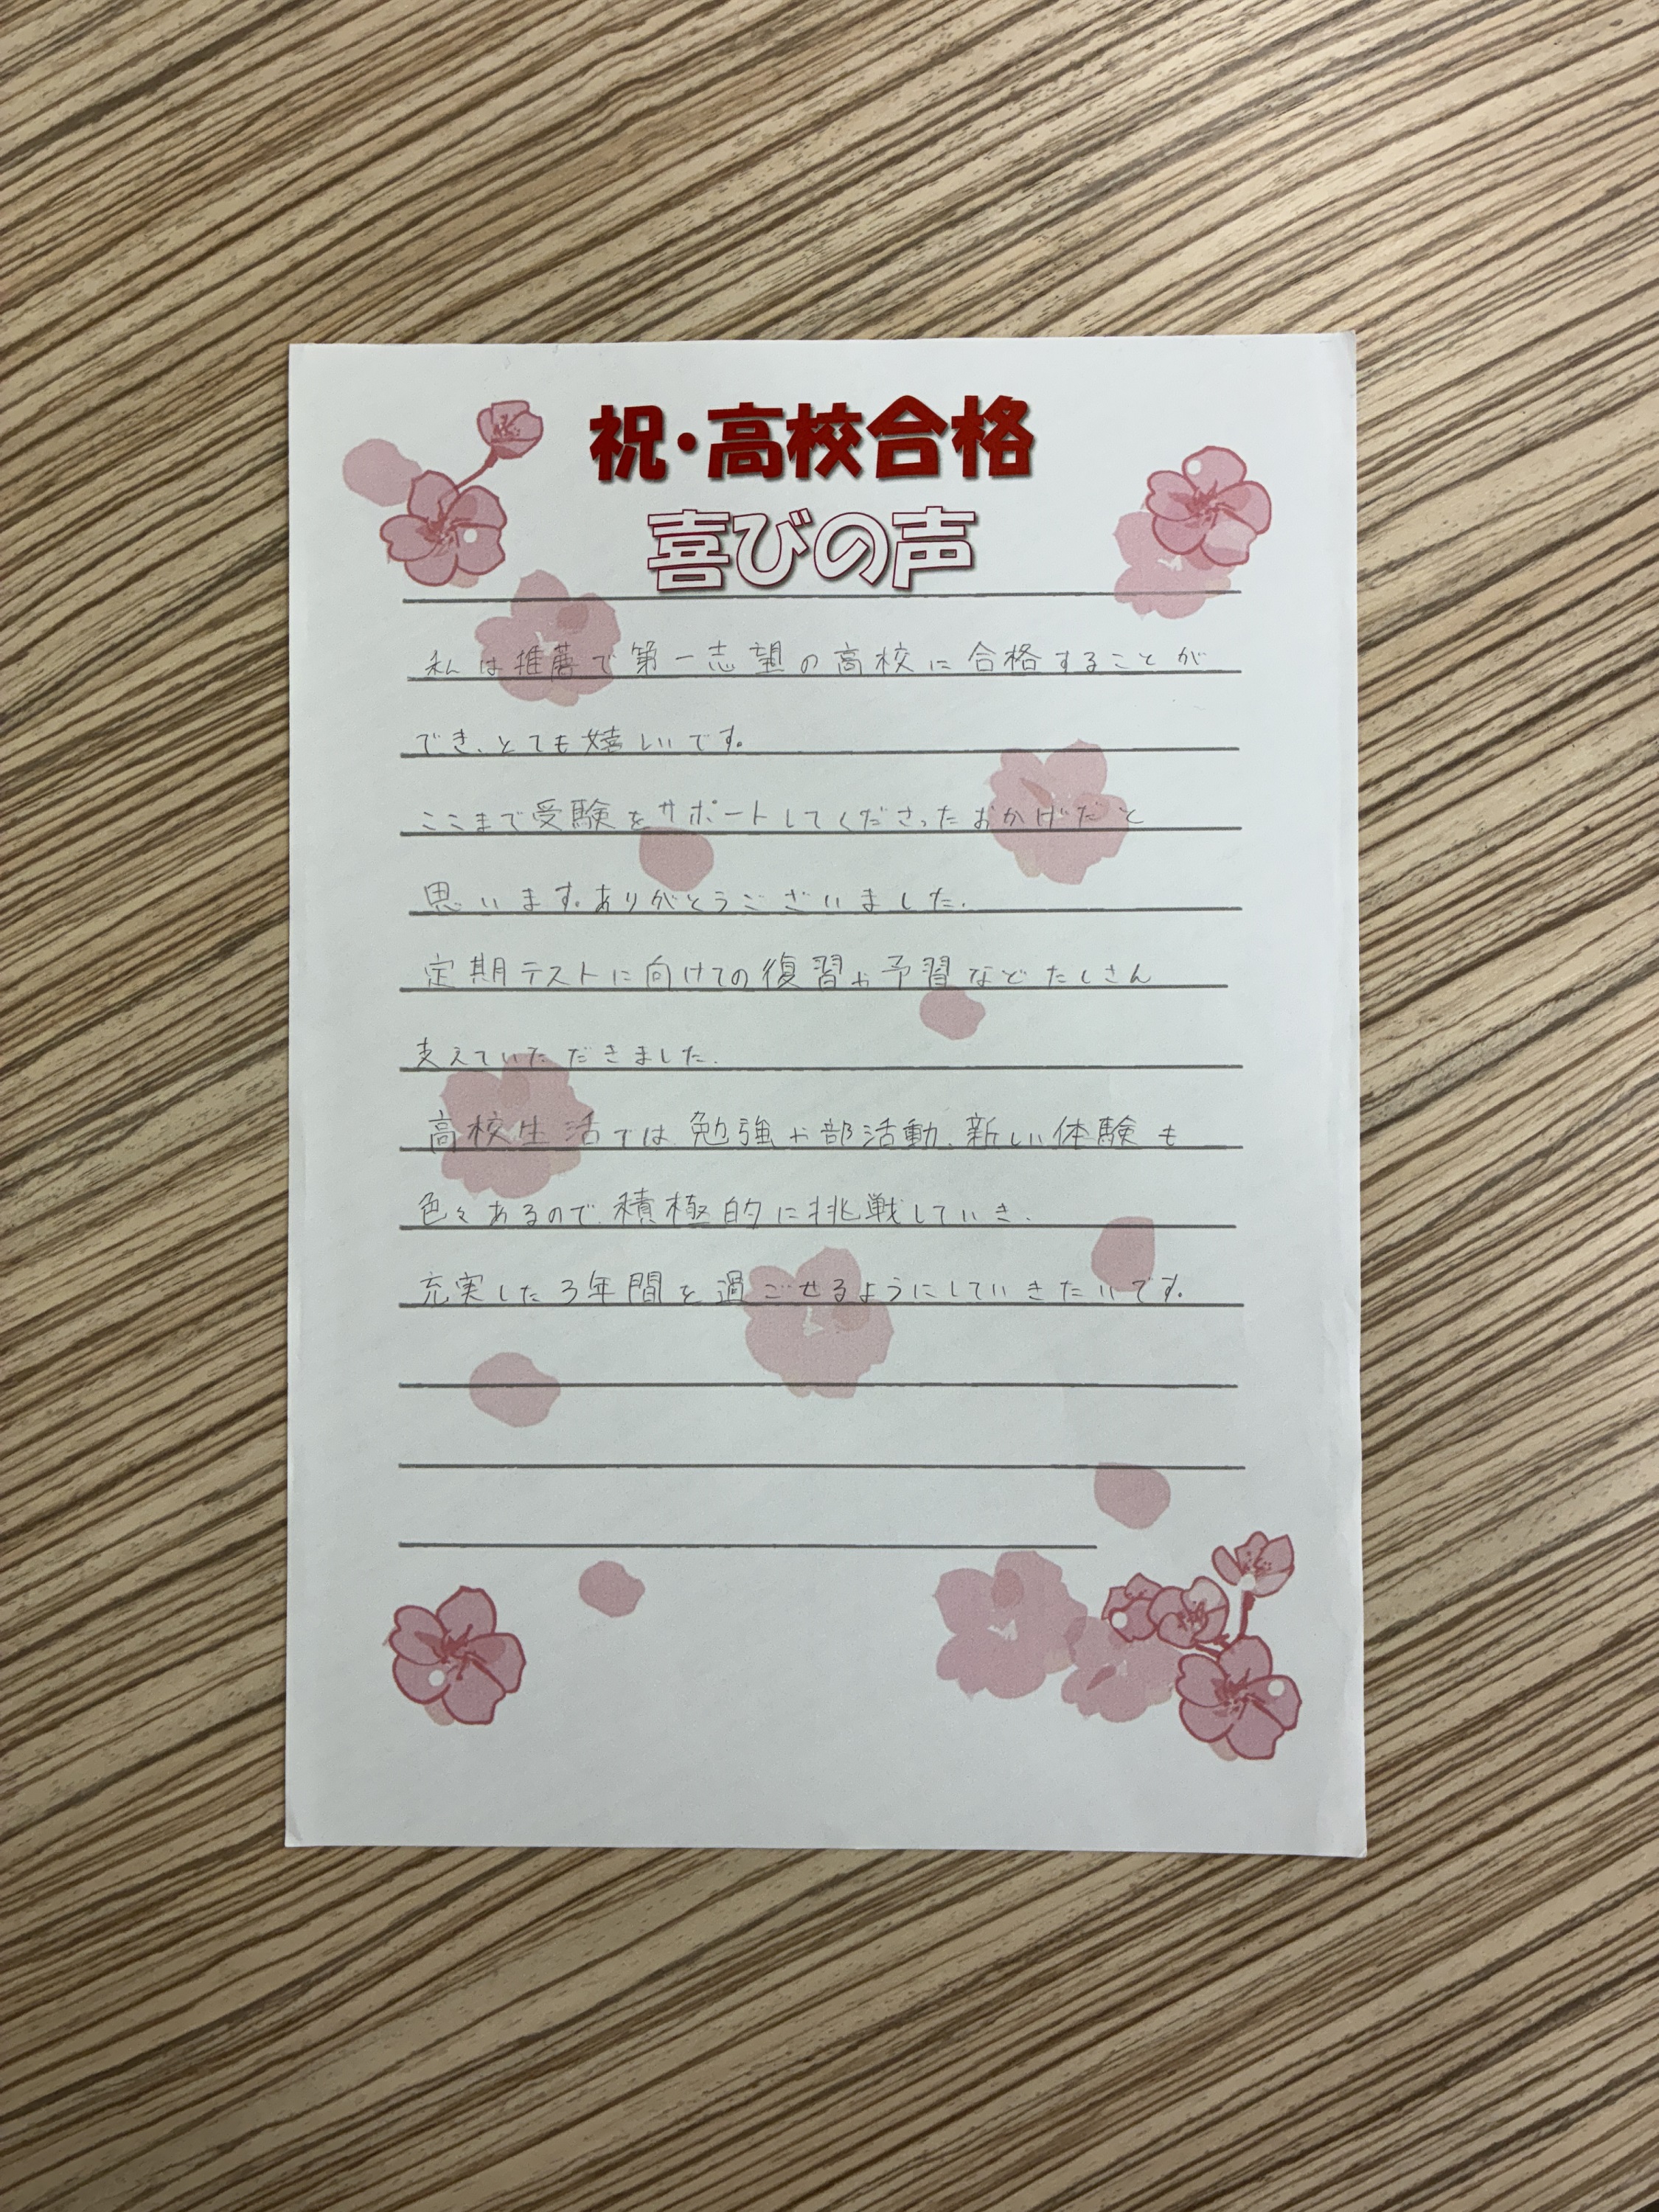 祝・高校合格
喜びの声
私は推薦で第一志望の高校に合格することが
でき、とても嬉しいです。
ここまで受験をサポートしてくださったおかげだと
思います。ありがとうございました。
定期テストに向けての復習や予習などたくさん
支えていただきました。
高校生活では、勉強や部活動、新しい体験も
色々あるので、積極的に挑戦していき、
充実した3年間を過ごせるようにしていきたいです。